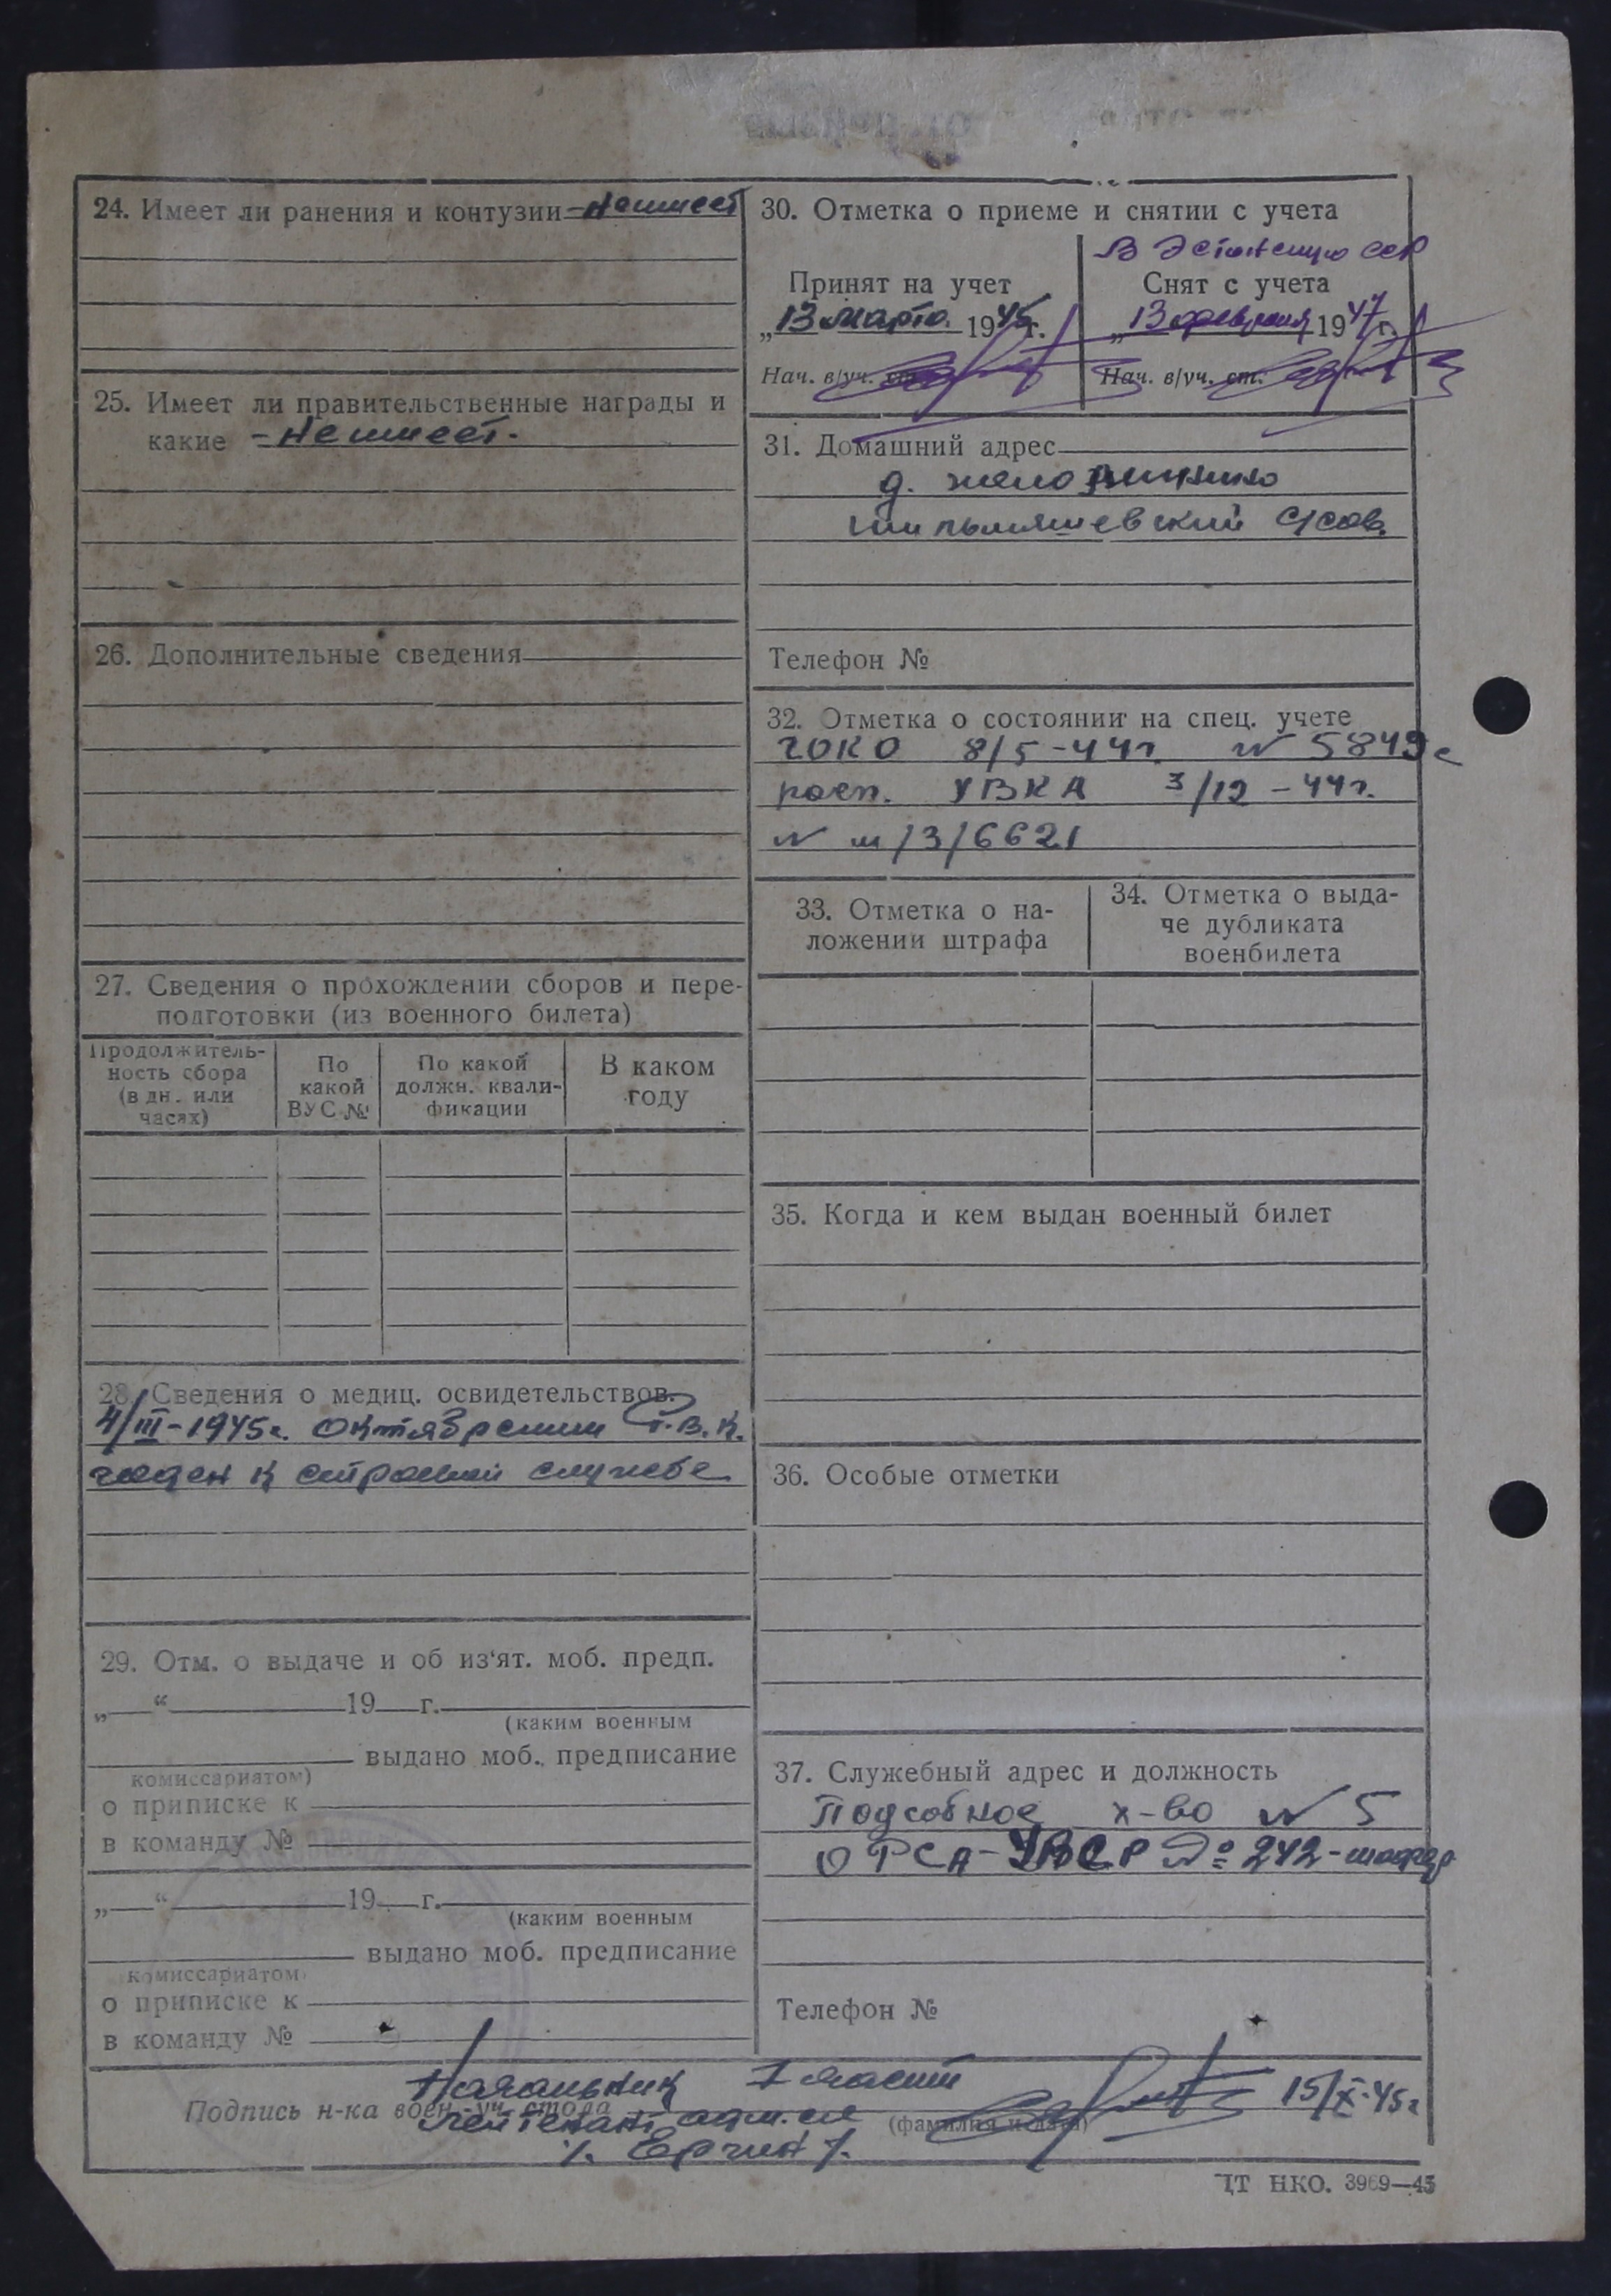 24. Имеет ли ранения и контузии - Не имеет
25. Имеет ли правительственные награды и
какие - Не имеет.
26. Дополнительные сведения
27. Сведения о прохождении сборов и пере-
подготовки (из военного билета)
Продолжитель-
ность сбора
(в дн. или
часах)
По
какой
ВУС №
По какой
должн. квали-
фикации
В каком
году
28. Сведения о медиц. освидетельствов.
4/III-1945г. Октябрским Р.В.К.
годен к строевой службе
29. Отм. о выдаче и об из'ят. моб. предп.
„ “ 19 г.
(каким военным
выдано моб. предписание
комиссариатом)
о приписке к
в команду №
„ “ 19 г.
(каким военным
выдано моб. предписание
комиссариатом)
о приписке к
в команду №
30. Отметка о приеме и снятии с учета
В Эстонскую ССР
Принят на учет
„13 марта 1945г.
Нач. в/уч. ст.
Снят с учета
„13 февраля 1947г.
Нач. в/уч. ст.
31. Домашний адрес
д.
с/сов.
Телефон №
32. Отметка о состоянии на спец. учете
ГОКО 8/5-44г. № 5849с
расп. УВКА 3/12-44г.
№ м/3/6621
33. Отметка о на-
ложении штрафа
34. Отметка о выда-
че дубликата
военбилета
35. Когда и кем выдан военный билет
36. Особые отметки
37. Служебный адрес и должность
Подсобное х-во № 5
ОРСА-УВСР № 242-
Телефон №
Начальник I части
Подпись н-ка воен.-уч. стола
лейтенант адм. сл
(фамилия и дата)
15/X-45г
/. Ергин /.
ЦТ НКО. 3969—45